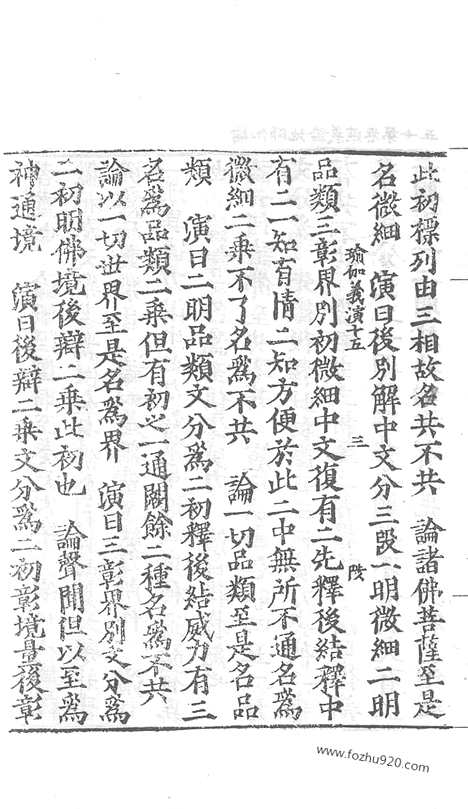 此初標列由三相故名共不共　論諸佛菩薩至是
名微細　演曰後別解中文分三段一明微細二明
瑜伽義演十五　三　陜
品類三彰界別初微細中文復有二先釋後結釋中
有二一知有情二知方便於此二中無所不通名爲
微細二乗不了名爲不共　論一切品類至是名品
類　演曰二明品類文分爲二初釋後結威力有三
名爲品類二乗但有初之一通闕餘二種名爲不共
論以一切世界至是名爲界　演曰三彰界別文分爲
二初明佛境後辯二乗此初也　論聲聞但以至爲
神通境　演曰後辯二乗文分爲二初彰境量後彰
www.fozhu920.com